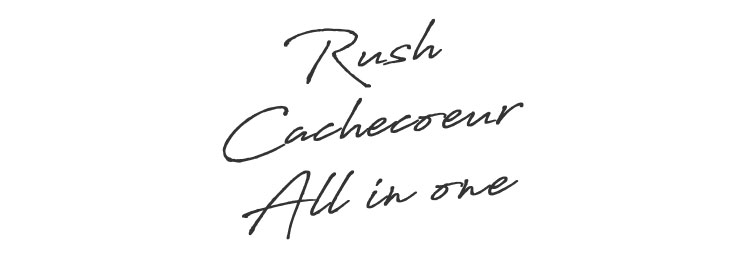 Rush
Cachecoeur
All in one